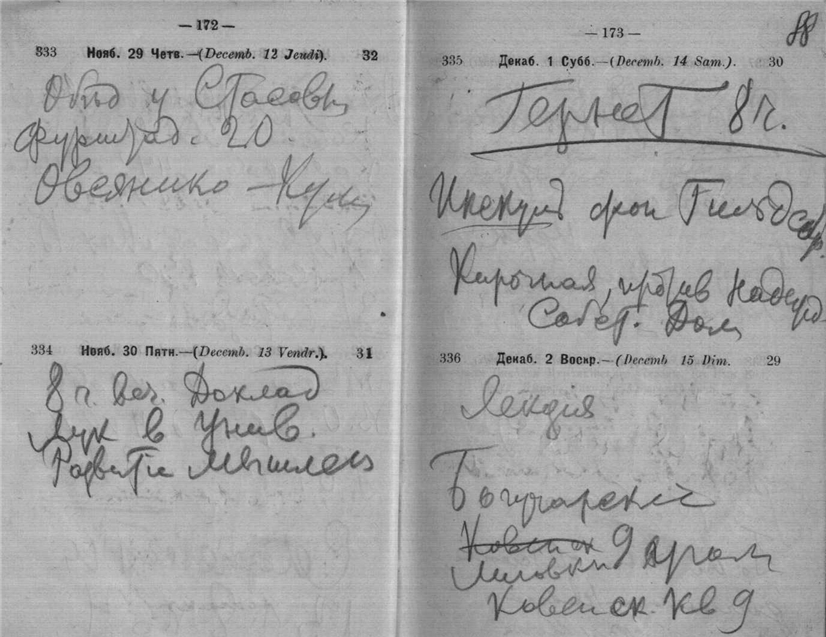 — 172 —
333 Нояб. 29 Четв.—(Decemb. 12 Jeudi). 32
Обед у Стасовых
Фурштад. 20
Овсянико-Кулик
334 Нояб. 30 Пятн.—(Decemb. 13 Vendr.). 31
8 ч. веч. Доклад
в Унив.
Развитие мышлен
— 173 —
88
335 Декаб. 1 Субб.—(Decemb. 14 Sam.). 30
Гернет 8 ч.
фон
Кирочная, против
Собст. Дом
336 Декаб. 2 Воскр.—(Decemb 15 Dim. 29
Лекция
Богучарский
Ковенск 9
Ковенск. кв 9